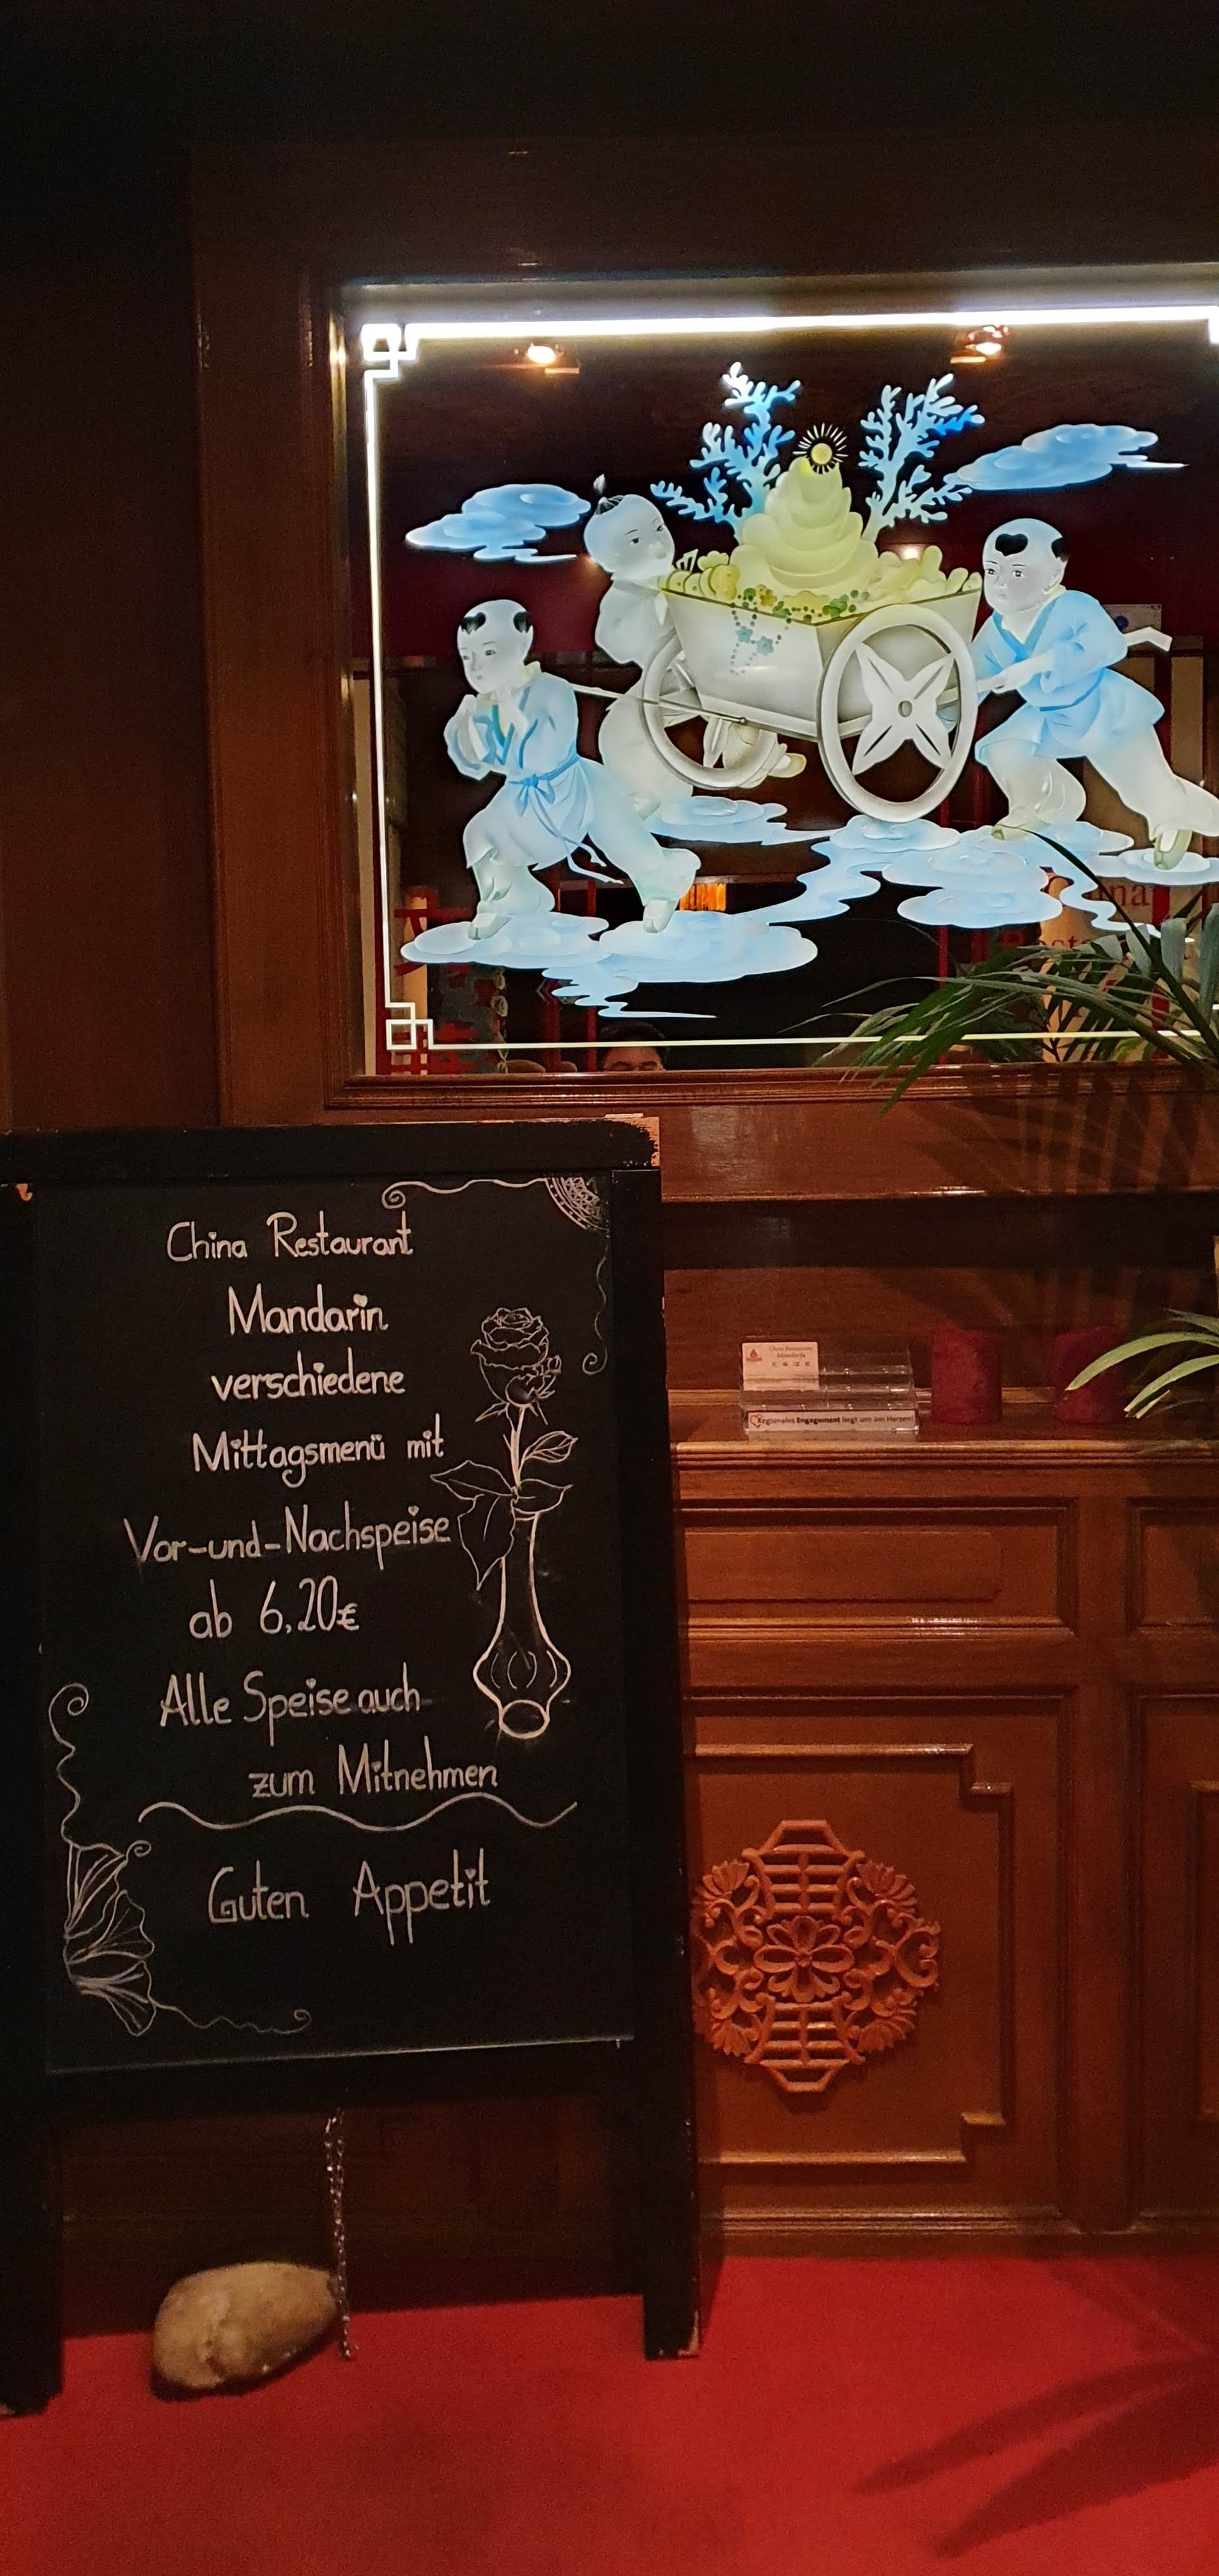 China Restaurant
Mandarin
verschiedene
Mittagsmenü mit
Vor-und-Nachspeise
ab 6,20€
Alle Speise auch
zum Mitnehmen
Guten Appetit
China Restaurant
Mandarin
Regionales Engagement liegt uns am Herzen!